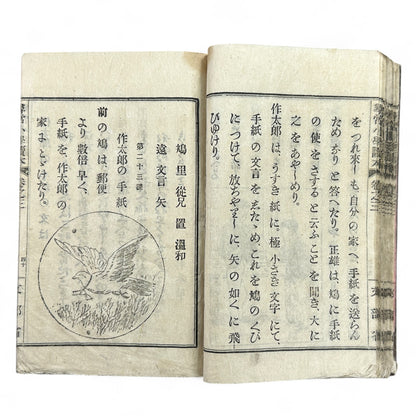 をつれ來 も自分の家へ、手紙を送らん
ためなりと答へたり。正雄は、鳩に手紙
の使をさすると云ふことを聞き、大に
作太郎は、うすき紙に、極小さき文字にて、
手紙の文言をしたゝめ、これを鳩のくび
につけて、放ちやりしに、矢の如くに飛
びゆけり。
鳩 里 從兄 置 溫和
遠 文言 矢
第二十三課
作太郎の手紙
前の鳩は、郵便
より數倍早く、
手紙を、作太郎の
家にとゞけたり。
文部省